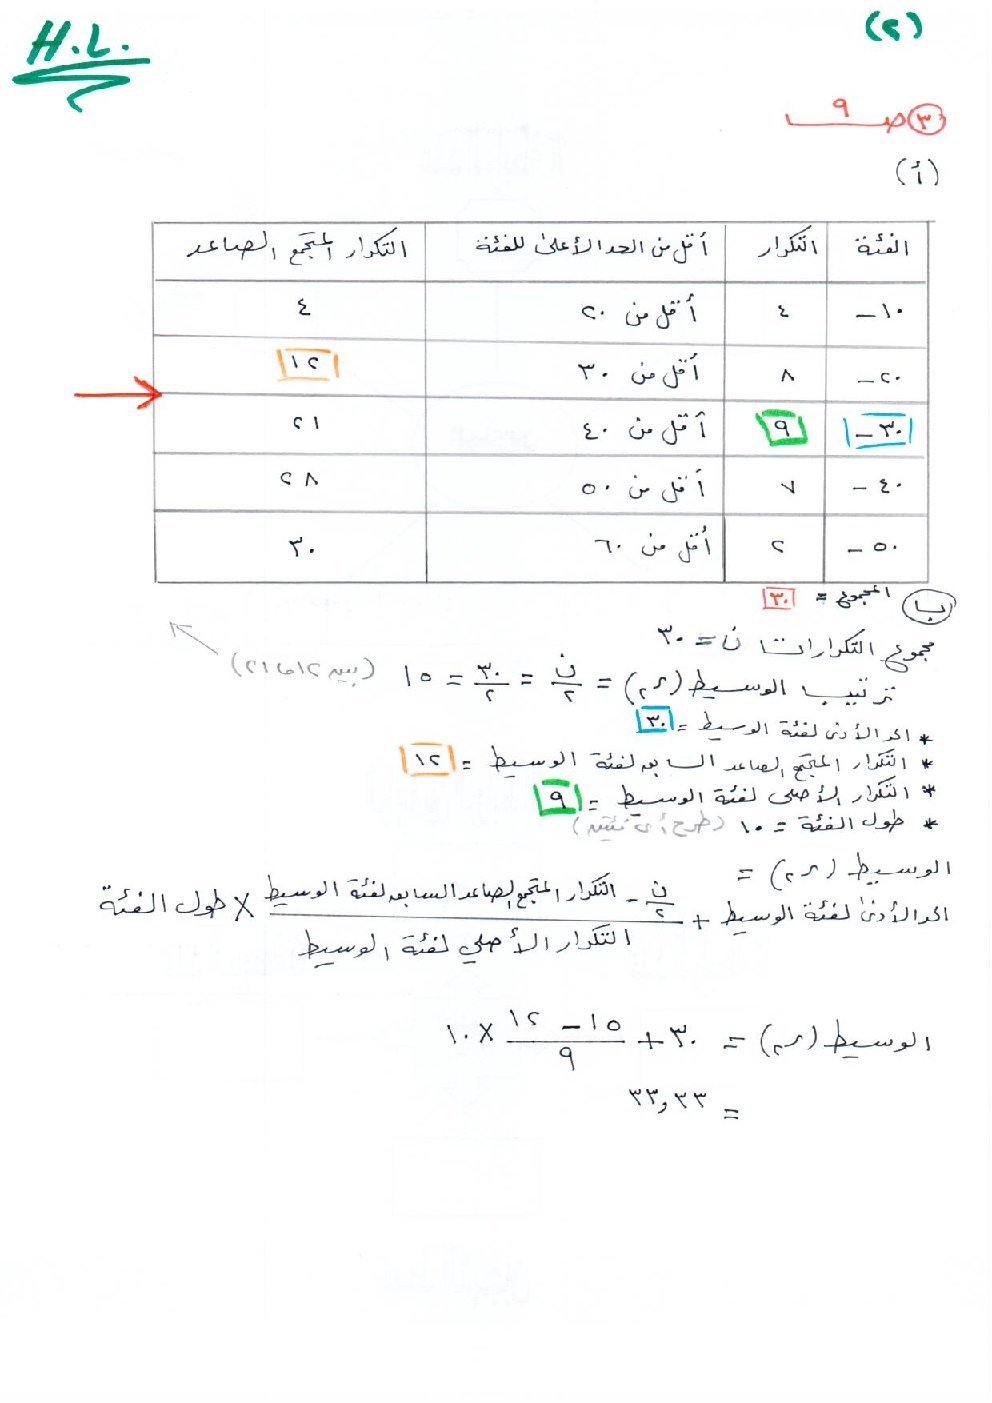 H.L.
(٢)
٣ ص ٩
(أ)
الفئة التكرار أقل من الحد الأعلى للفئة التكرار المتجمع الصاعد
١٠– ٤ أقل من ٢٠ ٤
٢٠– ٨ أقل من ٣٠ ١٢
٣٠– ٩ أقل من ٤٠ ٢١
٤٠– ٧ أقل من ٥٠ ٢٨
٥٠– ٢ أقل من ٦٠ ٣٠
المجموع = ٣٠
ب
مجموع التكرارات ن = ٣٠
ترتيب الوسيط (ر٢) = ن/٢ = ٣٠/٢ = ١٥ (بين ١٢ و ٢١)
* الحد الأدنى لفئة الوسيط = ٣٠
* التكرار المتجمع الصاعد السابق لفئة الوسيط = ١٢
* التكرار الأصلي لفئة الوسيط = ٩
* طول الفئة = ١٠ (طرح أي فئتين)
الوسيط (ر٢) =
الحد الأدنى لفئة الوسيط + (ن/٢ – التكرار المتجمع الصاعد السابق لفئة الوسيط) / التكرار الأصلي لفئة الوسيط × طول الفئة
الوسيط (ر٢) = ٣٠ + (١٥ – ١٢)/٩ × ١٠
= ٣٣,٣٣